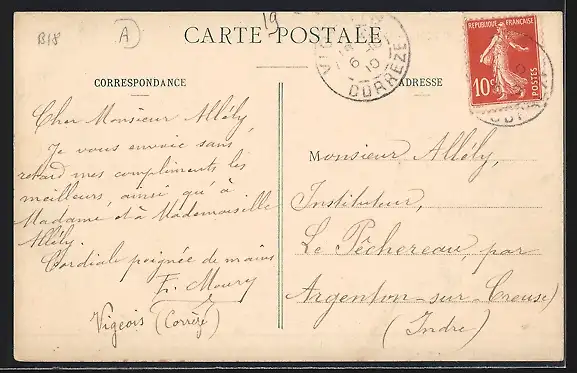 B18
A
19
CARTE POSTALE
CORRESPONDANCE
ADRESSE
CORRÈZE
REPUBLIQUE FRANÇAISE
10c
POSTES
Cher Monsieur Allély,
Je vous envoie sans
retard mes compliments les
meilleurs, ainsi qu'à
Madame et à Mademoiselle
Allély.
Cordiale poignée de mains
F. Moury
Vigeois (Corrèze)
Monsieur Allély,
Instituteur,
Le Pêchereau, par
Argenton-sur-Creuse
(Indre)